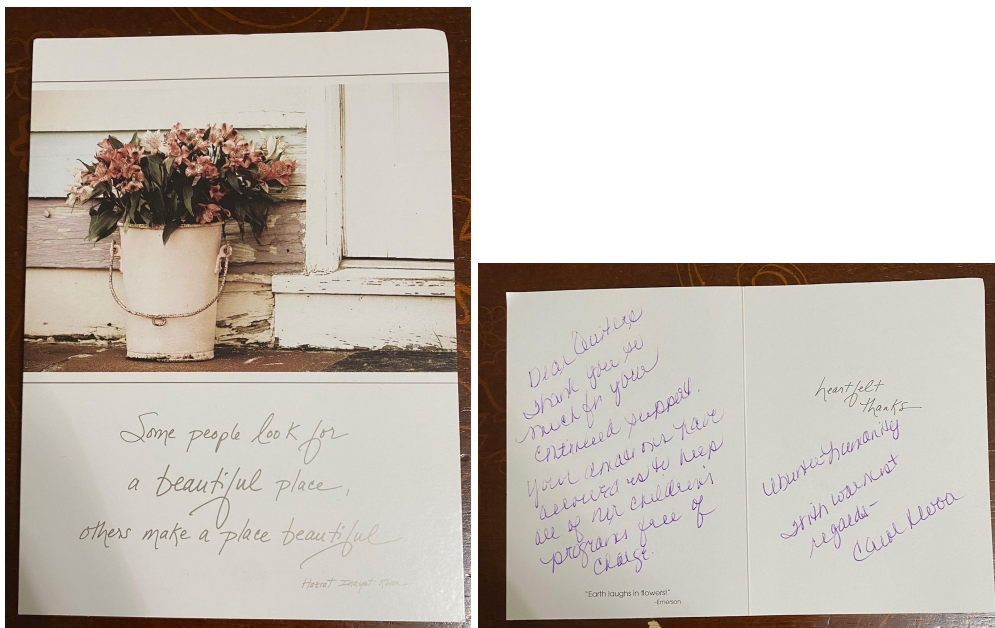 Some people look for
a beautiful place,
others make a place beautiful
Hazrat Inayat Khan
Dear
Thank you so
much for your
continued support.
Your donations have
allowed us to keep
all of our children's
programs free of
charge.
"Earth laughs in flowers!"
-Emerson
heartfelt
thanks
Ubuntu Humanity
With warmest
regards-
Carol